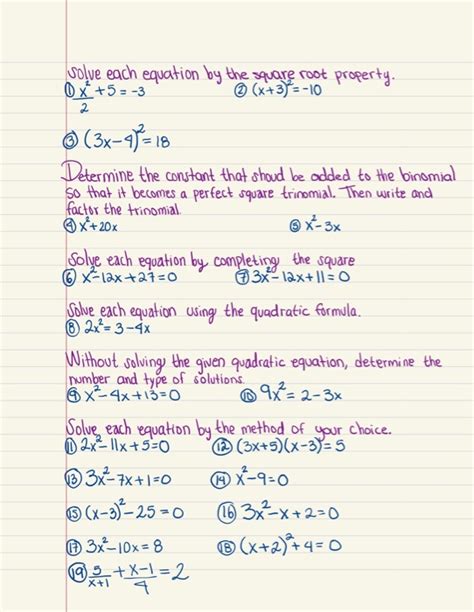 Solve each equation by the square root property.
① x²/2 + 5 = -3 ② (x+3)² = -10
③ (3x-4)² = 18
Determine the constant that shoud be added to the binomial
so that it becomes a perfect square trinomial. Then write and
factor the trinomial.
④ x² + 20x ⑤ x² - 3x
Solve each equation by completing the square
⑥ x² - 12x + 27 = 0 ⑦ 3x² - 12x + 11 = 0
Solve each equation using the quadratic formula.
⑧ 2x² = 3 - 4x
Without solving the given quadratic equation, determine the
number and type of solutions.
⑨ x² - 4x + 13 = 0 ⑩ 9x² = 2 - 3x
Solve each equation by the method of your choice.
⑪ 2x² - 11x + 5 = 0 ⑫ (3x+5)(x-3) = 5
⑬ 3x² - 7x + 1 = 0 ⑭ x² - 9 = 0
⑮ (x-3)² - 25 = 0 ⑯ 3x² - x + 2 = 0
⑰ 3x² - 10x = 8 ⑱ (x+2)² + 4 = 0
⑲ 5/(x+1) + (x-1)/4 = 2